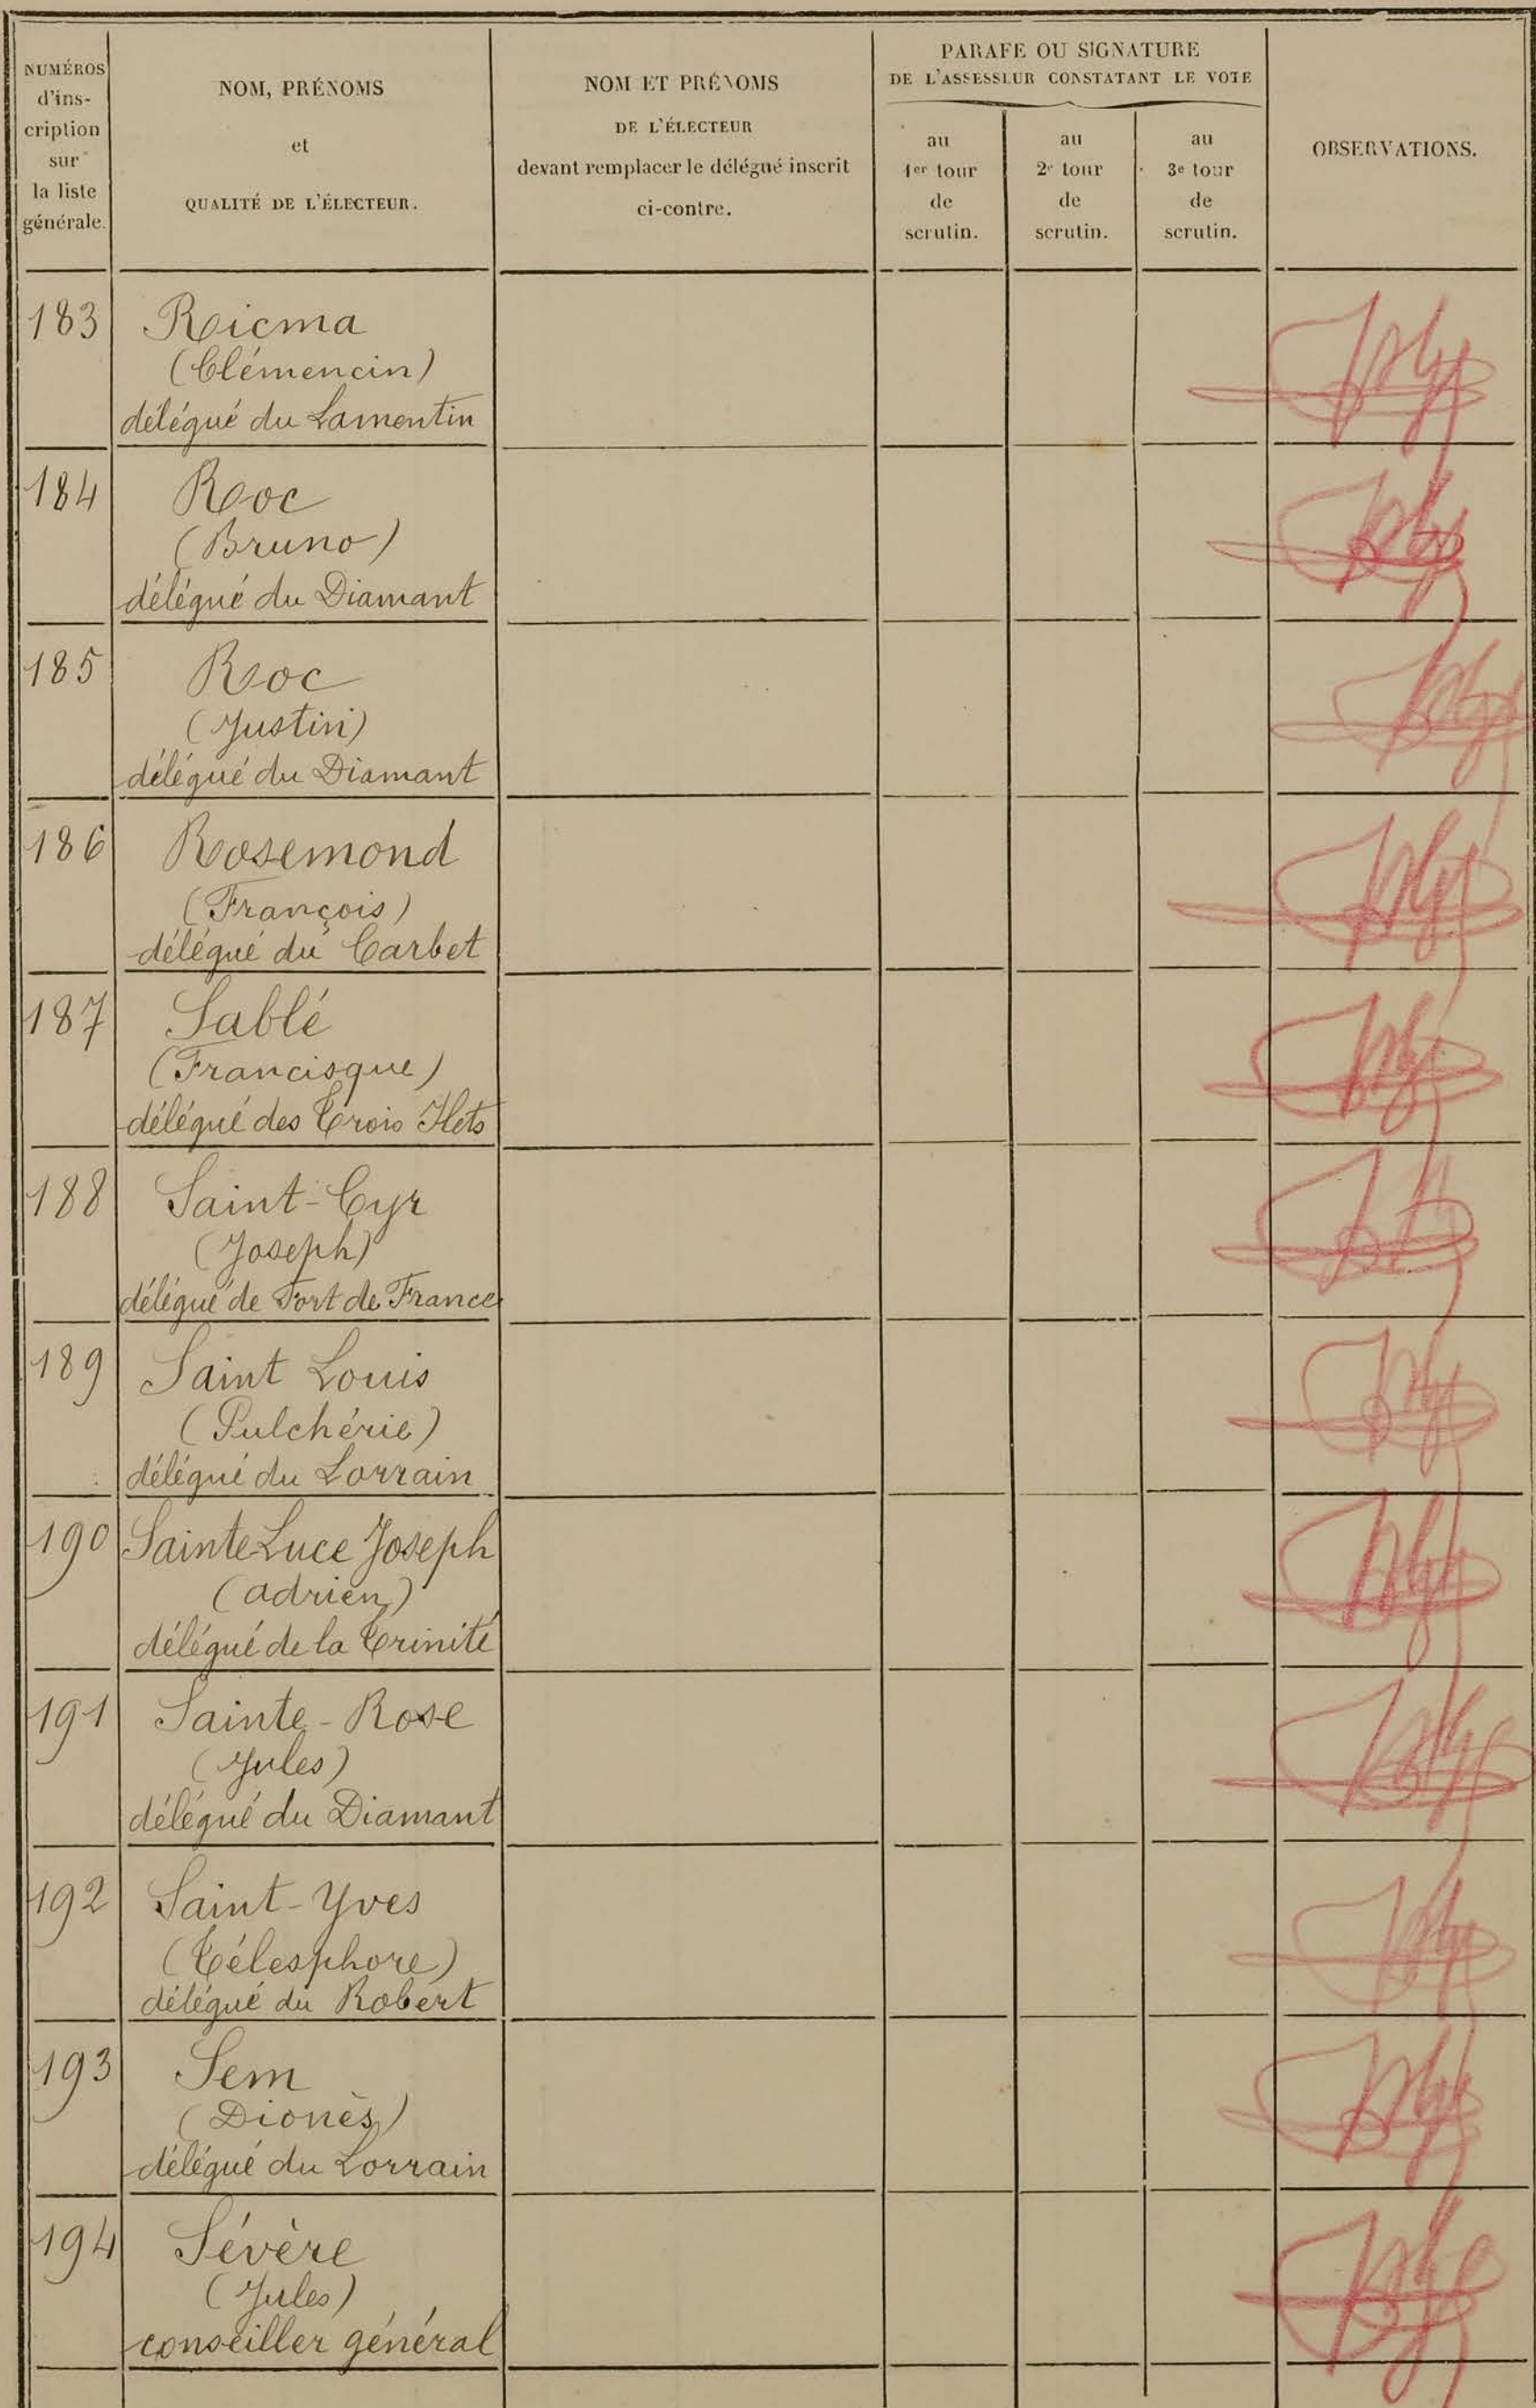 NUMÉROS
d'ins-
cription
sur
la liste
générale.
NOM, PRÉNOMS
et
QUALITÉ DE L'ÉLECTEUR.
NOM ET PRÉNOMS
DE L'ÉLECTEUR
devant remplacer le délégué inscrit
ci-contre.
PARAFE OU SIGNATURE
DE L'ASSESSEUR CONSTATANT LE VOTE
au
1er tour
de
scrutin.
au
2e tour
de
scrutin.
au
3e tour
de
scrutin.
OBSERVATIONS.
183 Ricma
(Clémencin)
délégué du Lamentin
184 Roc
(Bruno)
délégué du Diamant
185 Roc
(Justin)
délégué du Diamant
186 Rosemond
(François)
délégué du Carbet
187 Sablé
(Francisque)
délégué des Trois Ilets
188 Saint-Cyr
(Joseph)
délégué de Fort de France
189 Saint Louis
(Pulchérie)
délégué du Lorrain
190 Sainte-Luce Joseph
(Adrien)
délégué de la Trinité
191 Sainte-Rose
(Jules)
délégué du Diamant
192 Saint-Yves
(Télesphore)
délégué du Robert
193 Sem
(Dionès)
délégué du Lorrain
194 Sévère
(Jules)
conseiller général